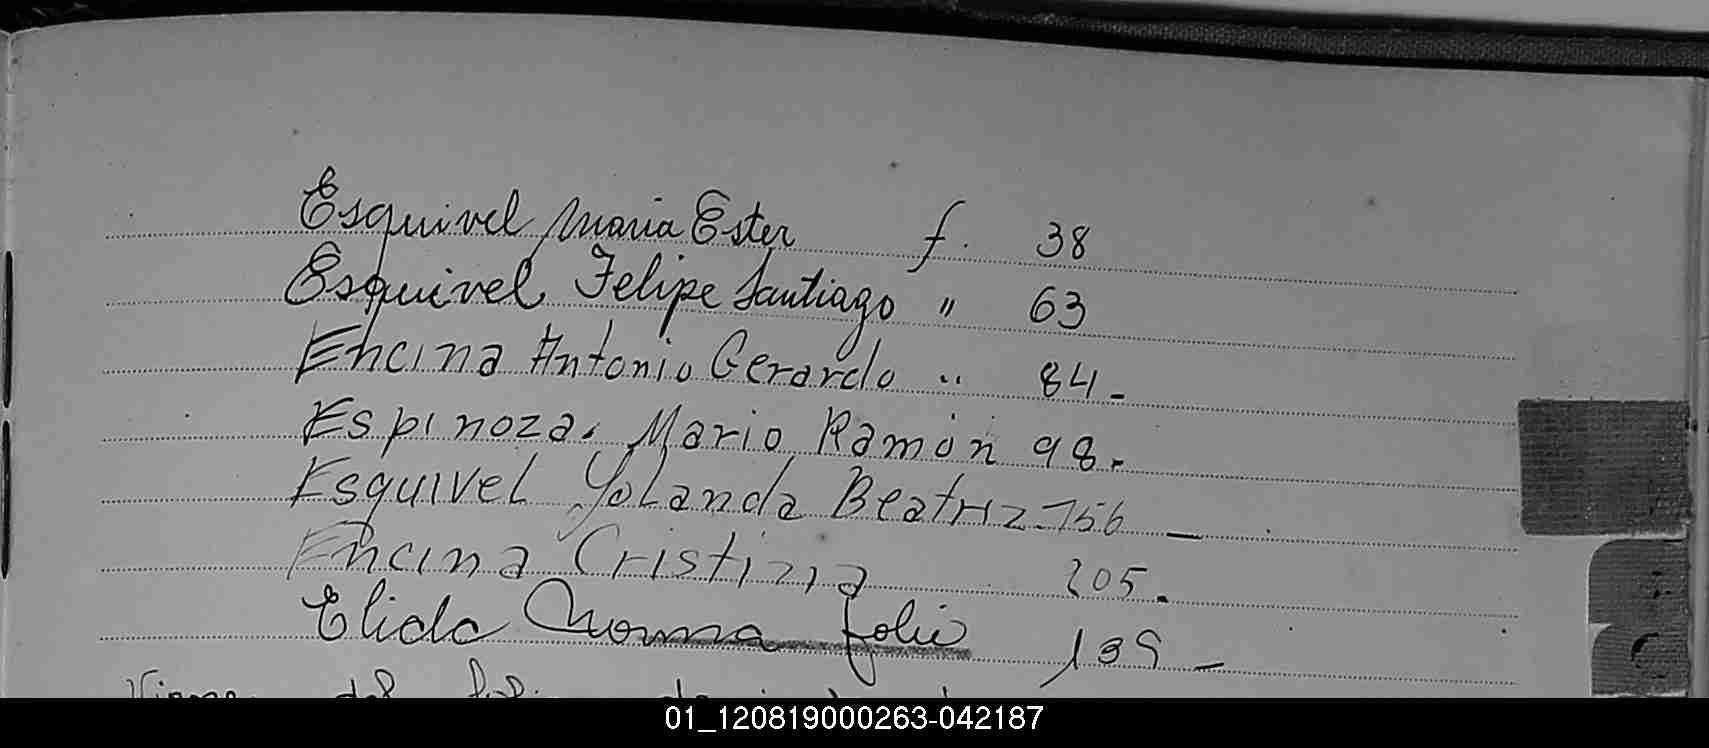 Esquivel Maria Ester f. 38
Esquivel Felipe Santiago " 63
Encina Antonio Gerardo " 84-
Espinoza. Mario Ramón 98.
Esquivel Yolanda Beatriz 156 -
Encina Cristina 205.
Elida Norma folio 139 -
01_120819000263-042187